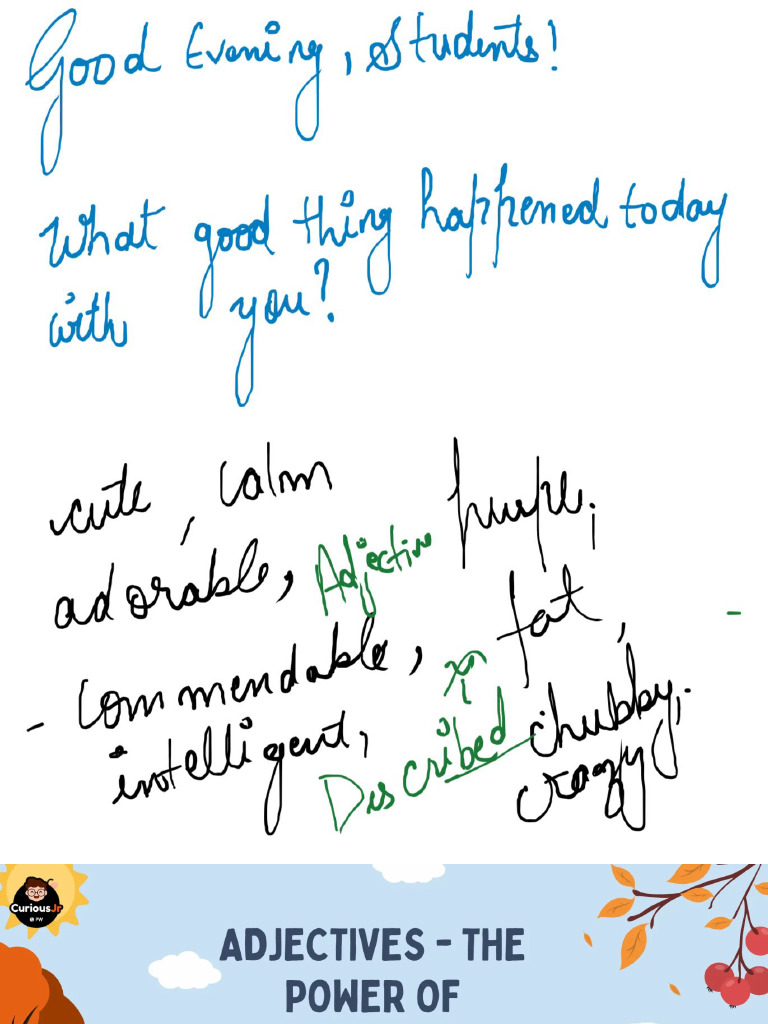 Good Evening, Students!
What good thing happened today
with you?
cute, calm
adorable, Adjective
- commendable, fat,
intelligent, Described chubby,
crazy
CuriousJr
PW
ADJECTIVES - THE
POWER OF